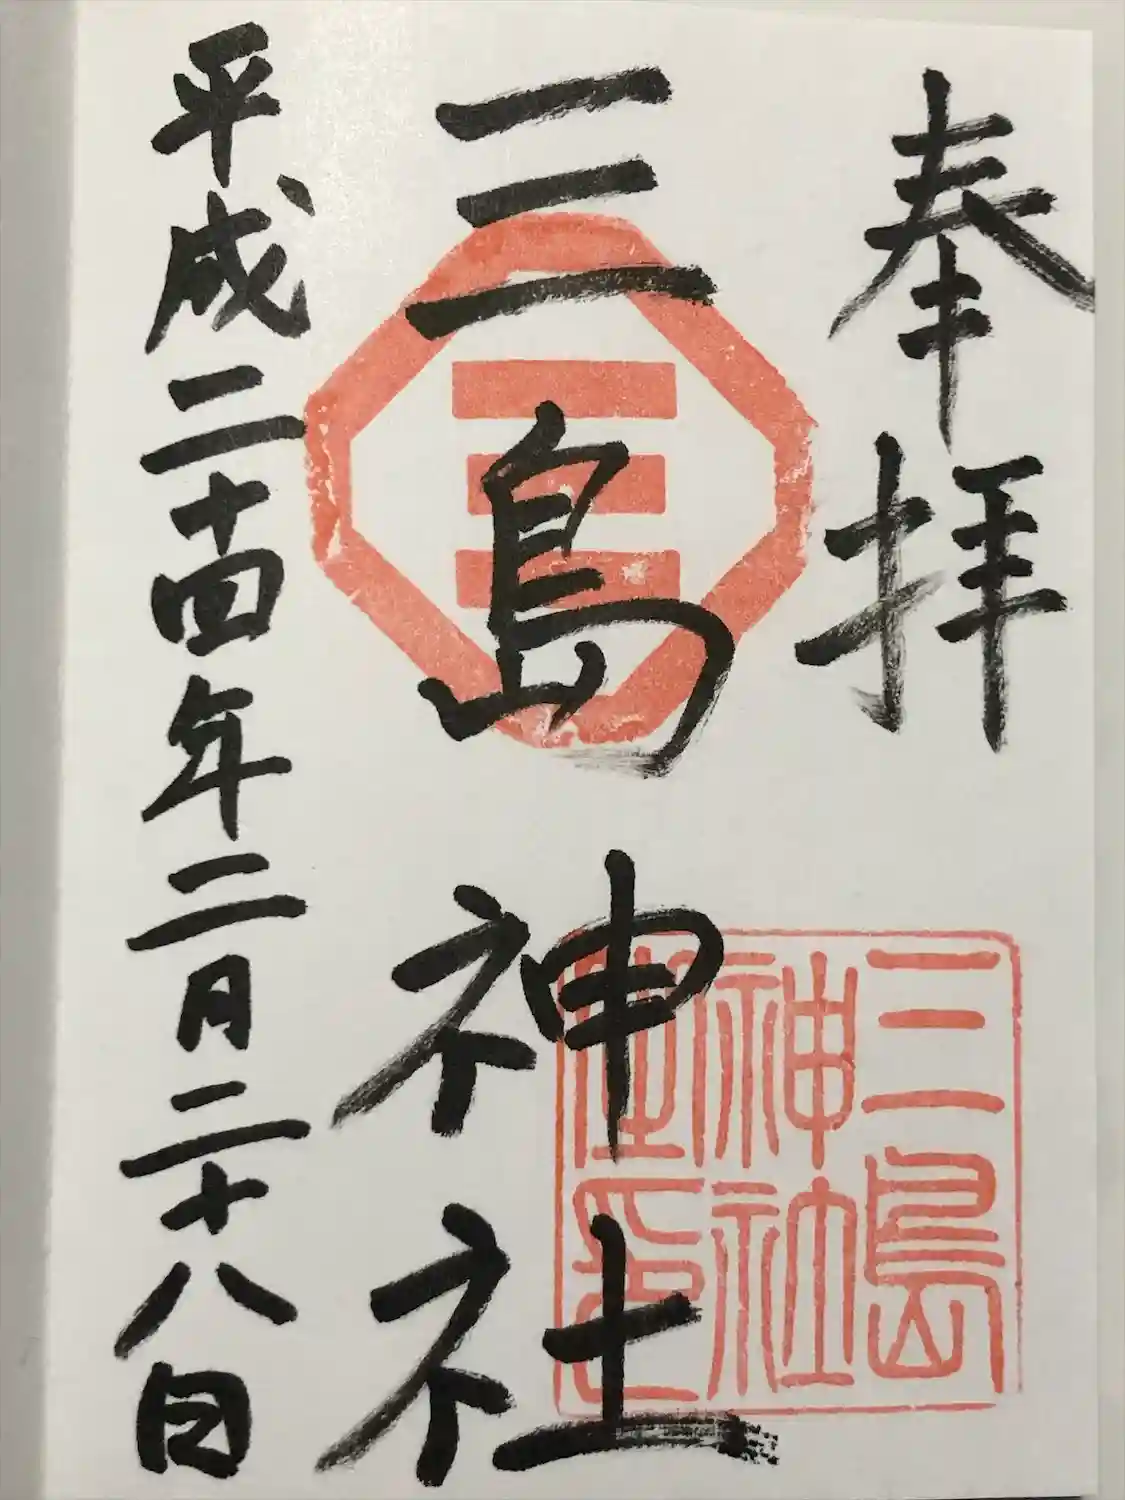 奉拝
三島神社
三島
神社
御印
平成二十四年二月二十八日